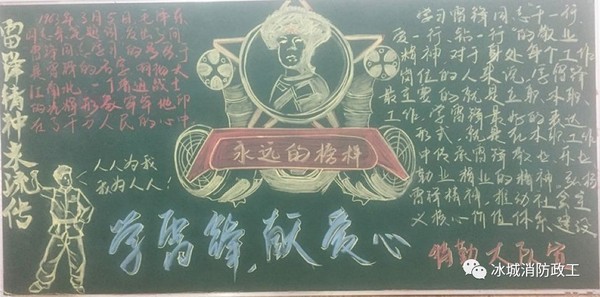 雷锋精神永流传
1963年3月5日毛泽东
同志亲笔题词发出了"向
雷锋同志学习"的号召于
是雷锋的名字
的中
在了千万人民的心中
人人为我
我为人人!
永远的榜样
学雷锋,献爱心
学习雷锋同志干一行、
爱一行、钻一行的敬业
精神对于身处每个工作
岗位的人来说,学雷锋
最主要的就是立足本职
工作,学雷锋最好的表达
形式,就是在本职工作
中传承雷锋敬业、
勤业精业的精神,
雷锋精神,推动社会主
义核心价值体系建设
特勤大队宣
冰城消防政工